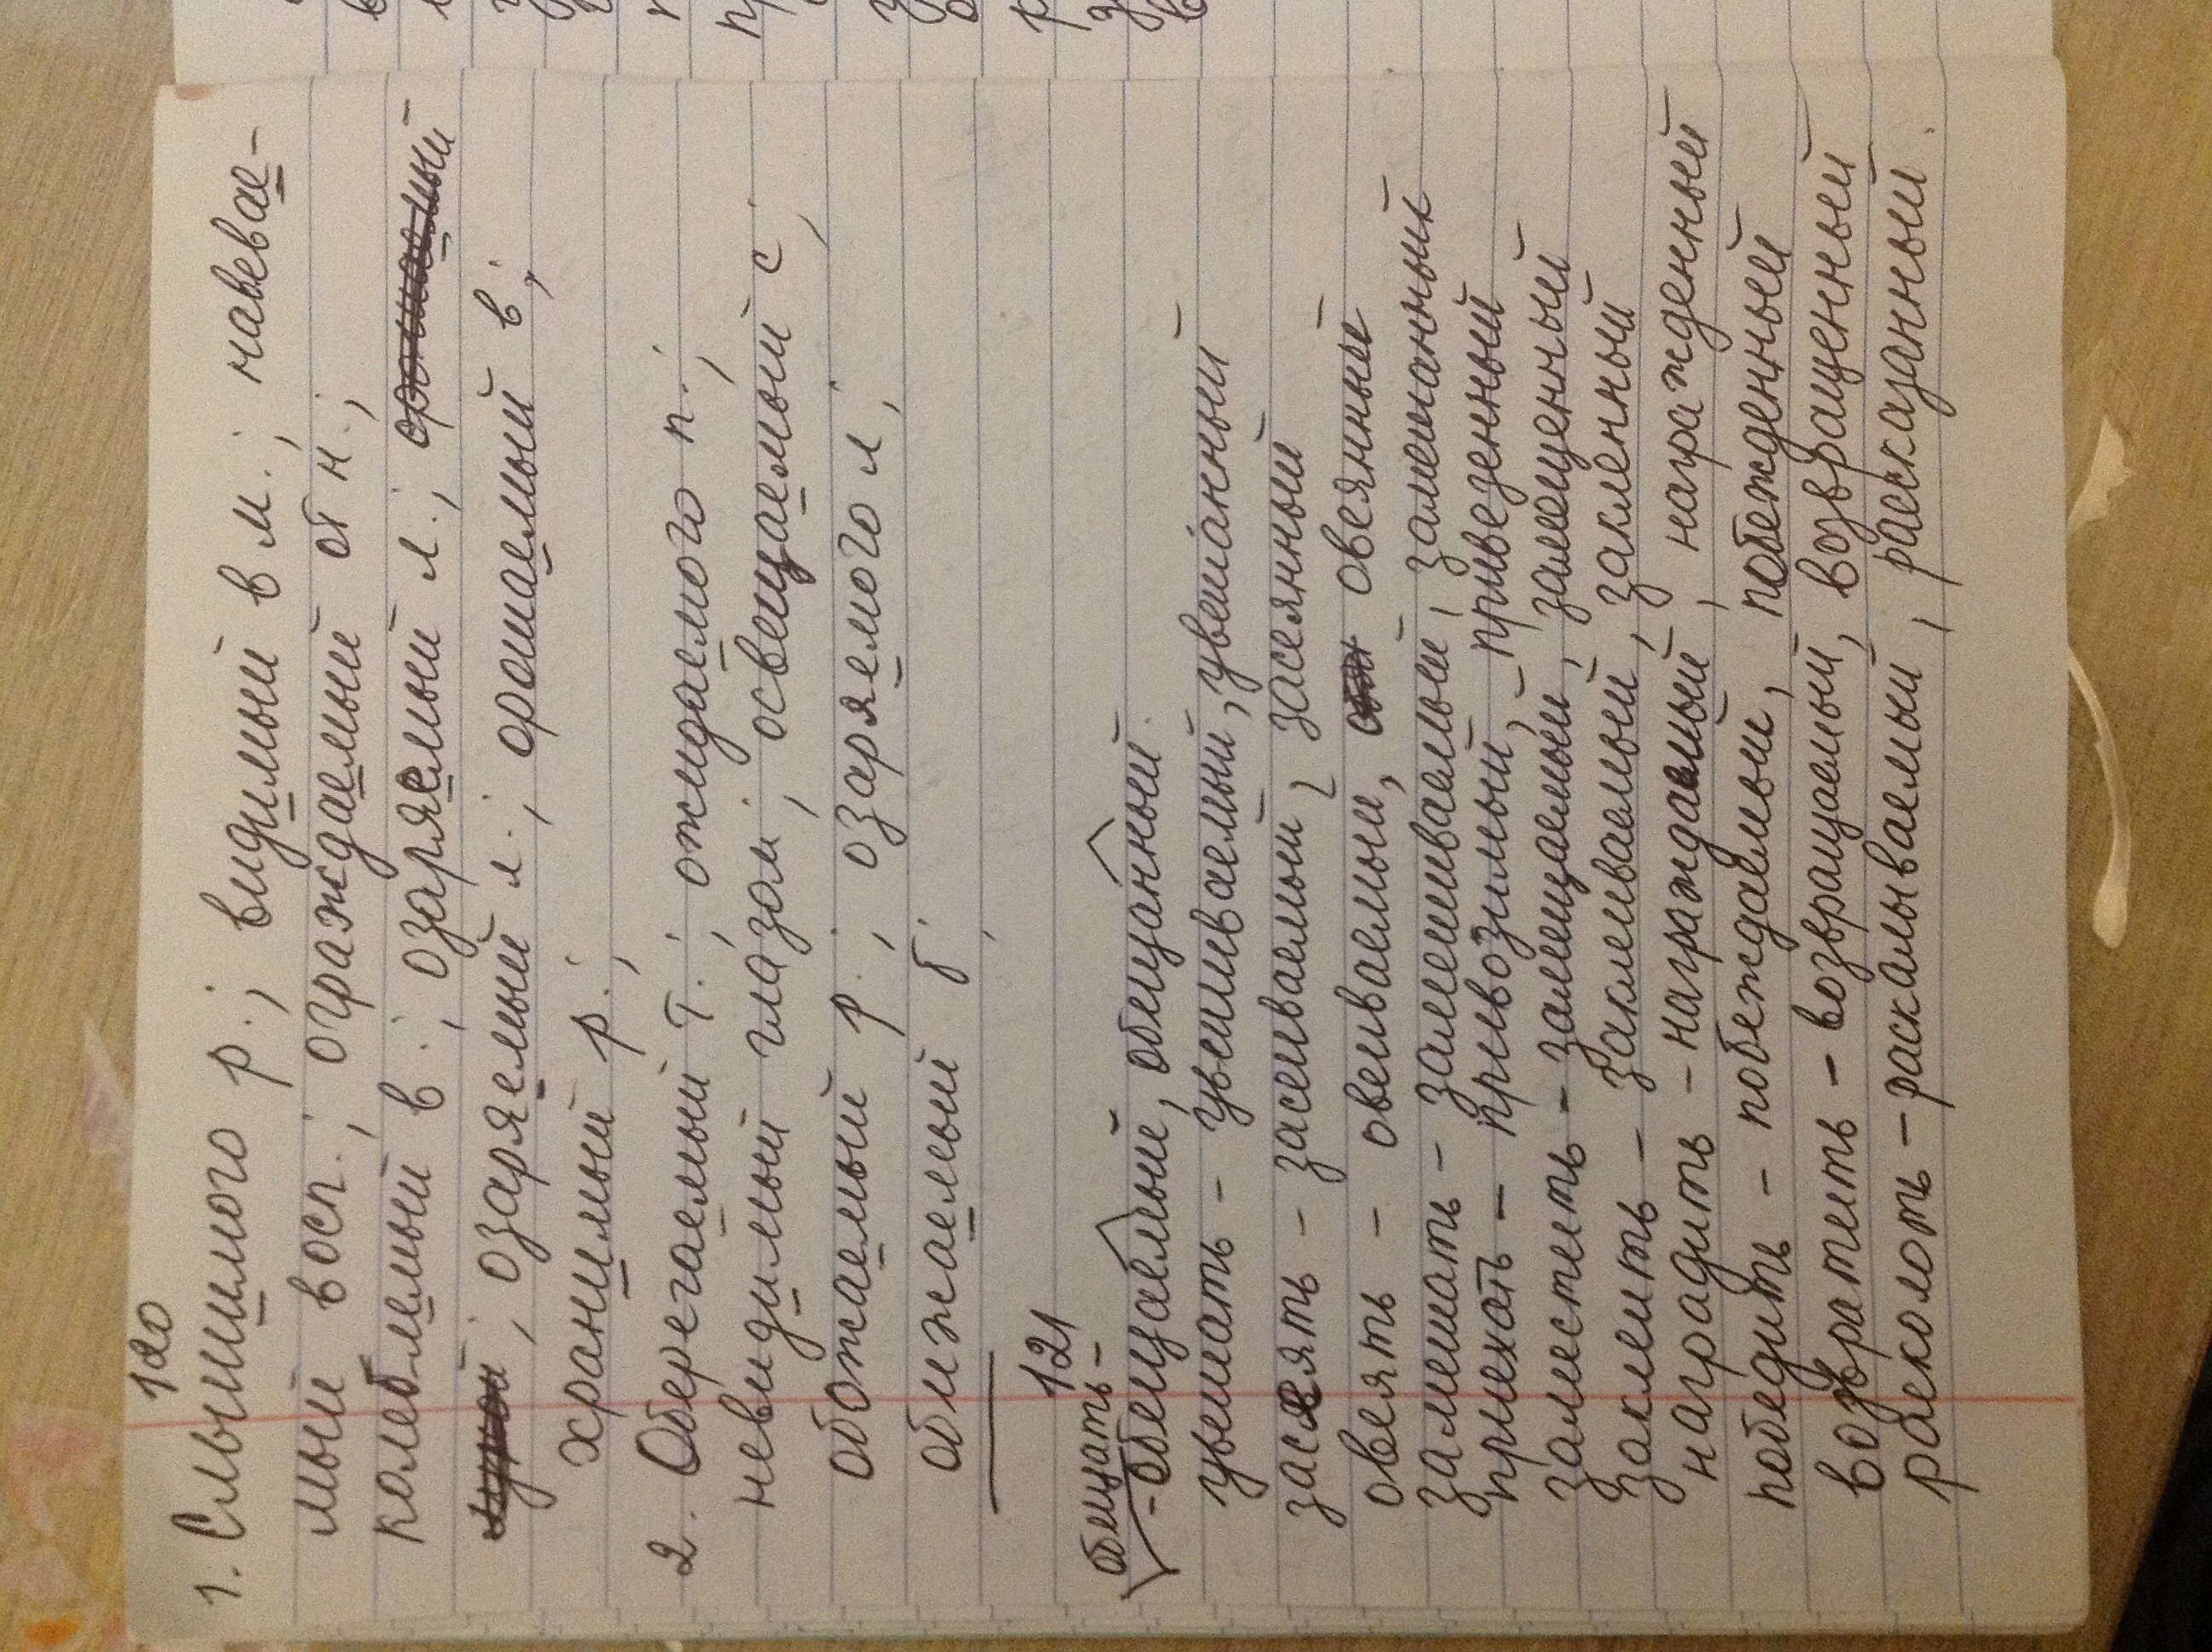 120
1. Слышимого р.; видимый в м.; навевае-
мый восп.; ограждаемый от н.;
колеблемый в.; озаряемый л.;
; озаряемый л.; орошаемый в;
хранимый р.;
2. Оберегаемый т.; ожидаемого п.;
невидимый глазом; освещаемый с;
обожаемый р.; озаряемого л;
обижаемый б;
121
обещать -
- обещаемый, обещанный.
увешать - увешиваемый, увешанный
засеять - засеиваемый, засеянный
овеять - овеиваемый, овеянный
замешать - замешиваемый, замешанный
приехать - привозимый, привезенный
заместить - замещаемый, замещенный
заклеить - заклеиваемый, заклеенный
наградить - награждаемый, награжденный
победить - побеждаемый, побежденный
возвратить - возвращаемый, возвращенный
расколоть - раскалываемый, рассказанный.